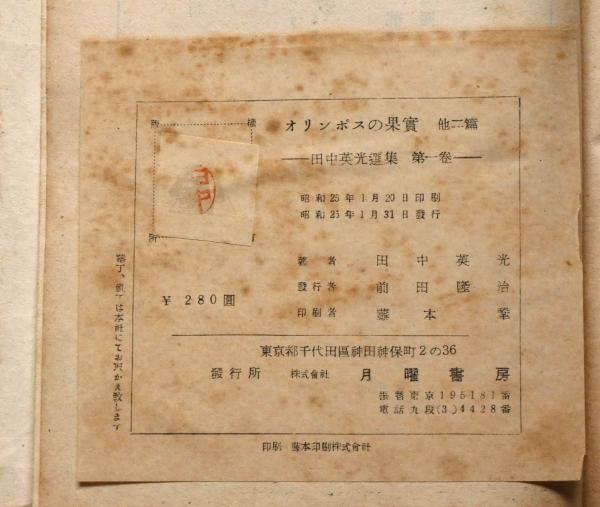 オリンポスの果實 他二篇
田中英光選集 第一卷
昭和25年1月20日印刷
昭和25年1月31日發行
著者 田中英光
發行者 前田隆治
印刷者 藤本
¥280圓
東京都千代田區神田神保町2の36
發行所 株式會社 月曜書房
振替東京195181番
電話九段(3)4428番
印刷 藤本印刷株式會社
落丁、亂丁は本社にてお取かえ致します